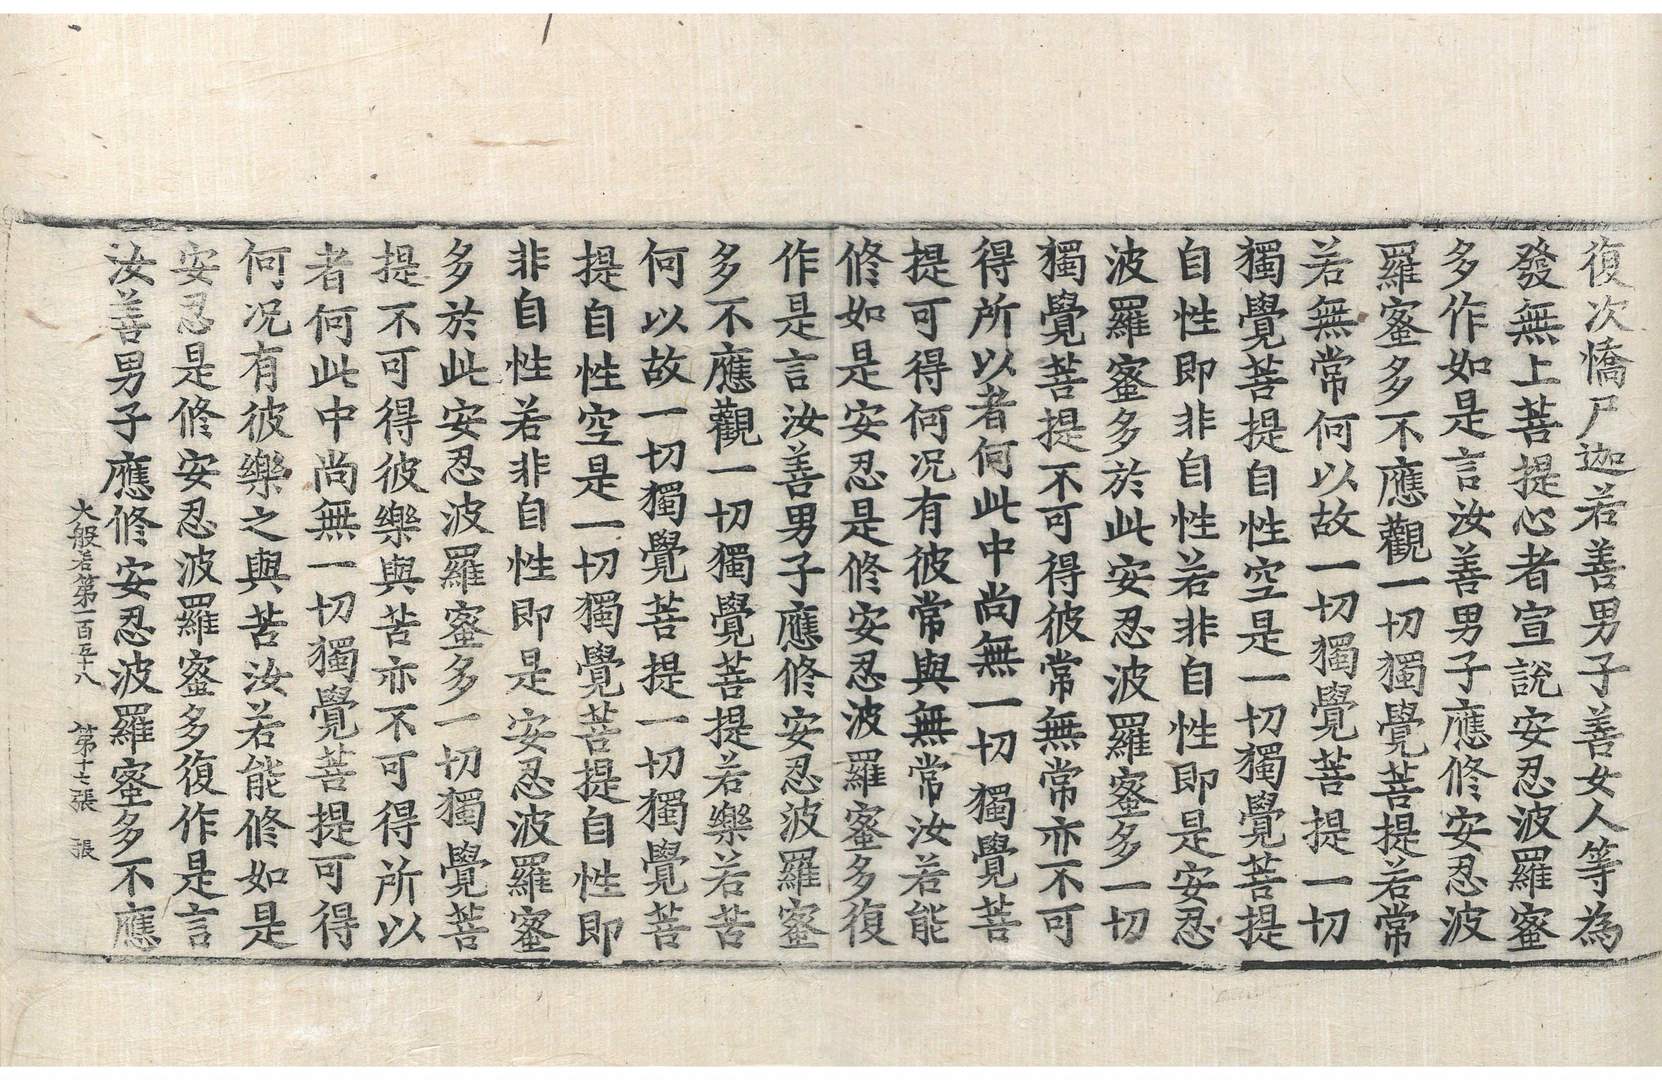 復次憍尸迦若善男子善女人等為
發無上菩提心者宣說安忍波羅蜜
多作如是言汝善男子應修安忍波
羅蜜多不應觀一切獨覺菩提若常
若無常何以故一切獨覺菩提一切
獨覺菩提自性空是一切獨覺菩提
自性即非自性若非自性即是安忍
波羅蜜多於此安忍波羅蜜多一切
獨覺菩提不可得彼常無常亦不可
得所以者何此中尚無一切獨覺菩
提可得何况有彼常與無常汝若能
修如是安忍是修安忍波羅蜜多復
作是言汝善男子應修安忍波羅蜜
多不應觀一切獨覺菩提若樂若苦
何以故一切獨覺菩提一切獨覺菩
提自性空是一切獨覺菩提自性即
非自性若非自性即是安忍波羅蜜
多於此安忍波羅蜜多一切獨覺菩
提不可得彼樂與苦亦不可得所以
者何此中尚無一切獨覺菩提可得
何况有彼樂之與苦汝若能修如是
安忍是修安忍波羅蜜多復作是言
汝善男子應修安忍波羅蜜多不應
大般若第一百五十八 第十七張 張